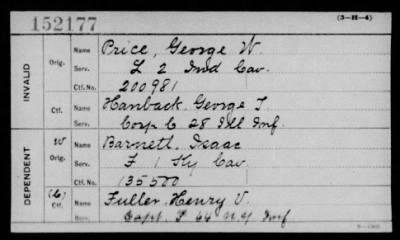 152177
(3-H-4)
INVALID
Orig.
Name Price, George W.
Serv. L 2 Ind Cav.
Ctf. No. 200981
Ctf.
Name Hanback, George T.
Serv. Corp C 28 Ill Inf.
DEPENDENT
W
Orig.
Name Barnett, Isaac
Serv. F 1 Ky Cav.
Ctf. No. 135500
(C)
Ctf.
Name Fuller, Henry V.
Serv. Capt. F 64 N.Y. Inf